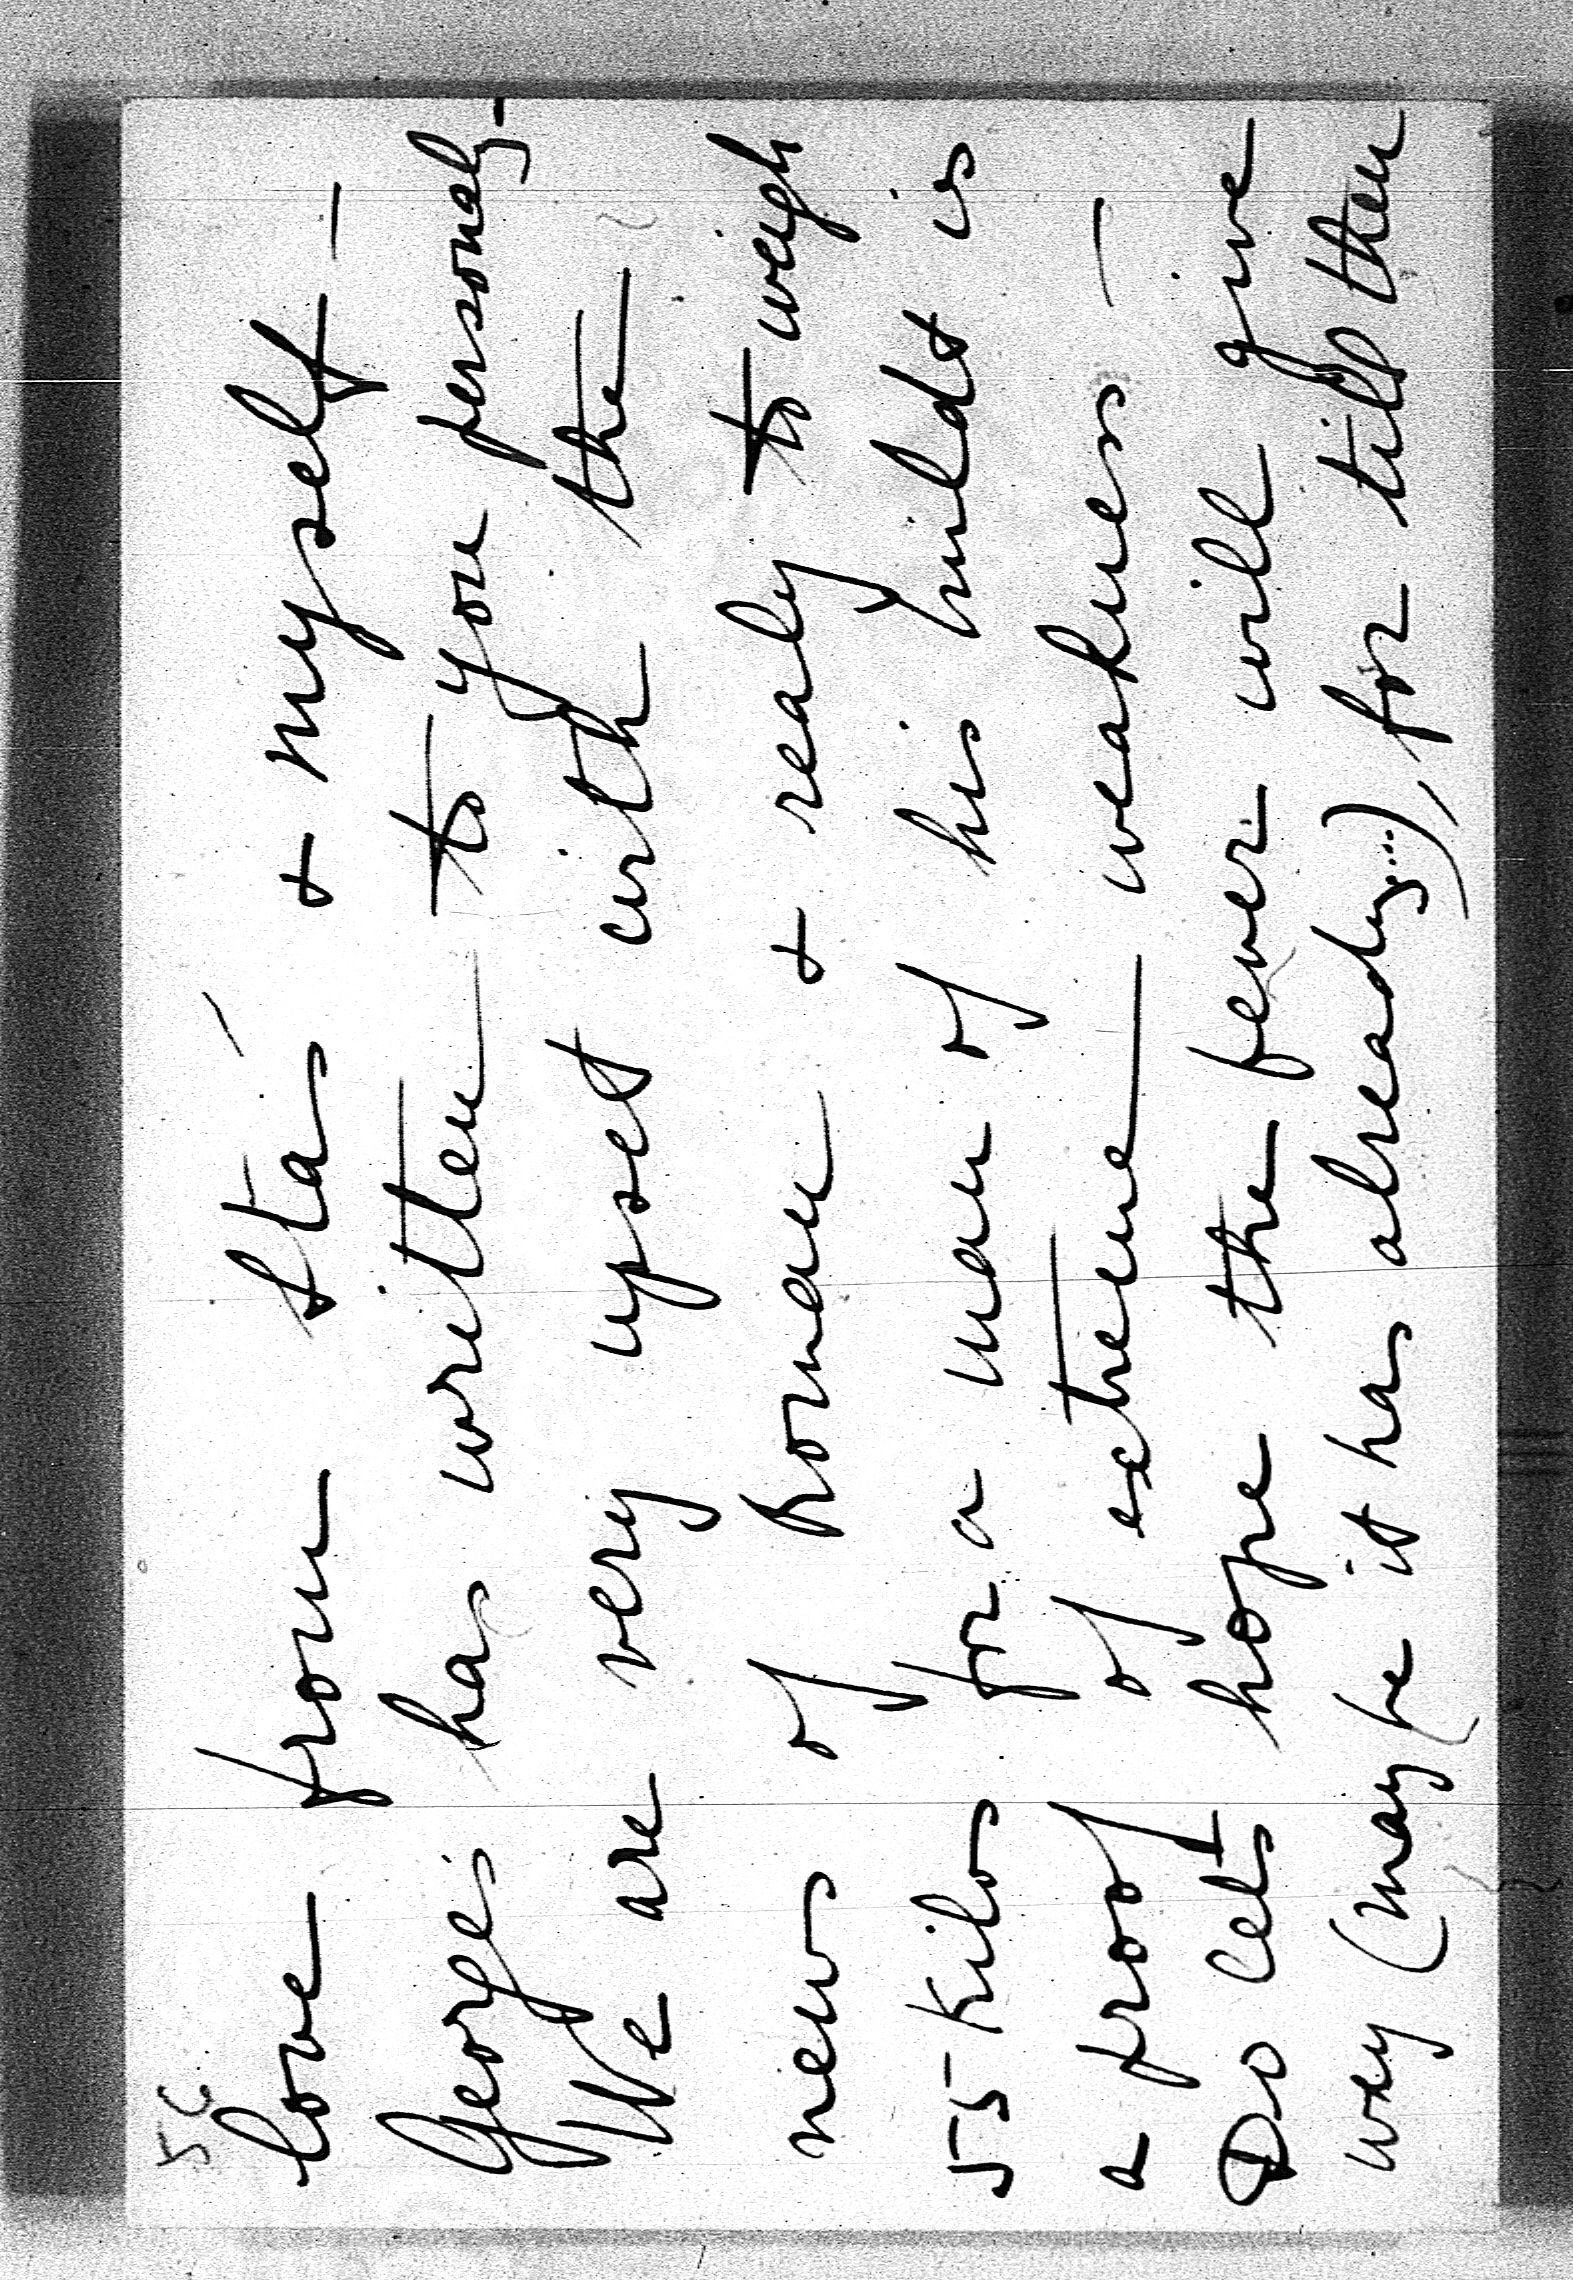 56
love from Stas & myself —
Georges has written to you personaly -
We are very upset with the
news of Roman & realy to weigh
55 Kilos for a man of his hildt is
a proof of extreme weakness —
Do Let's hope the fever will give
wey (may be it has already...), for till then